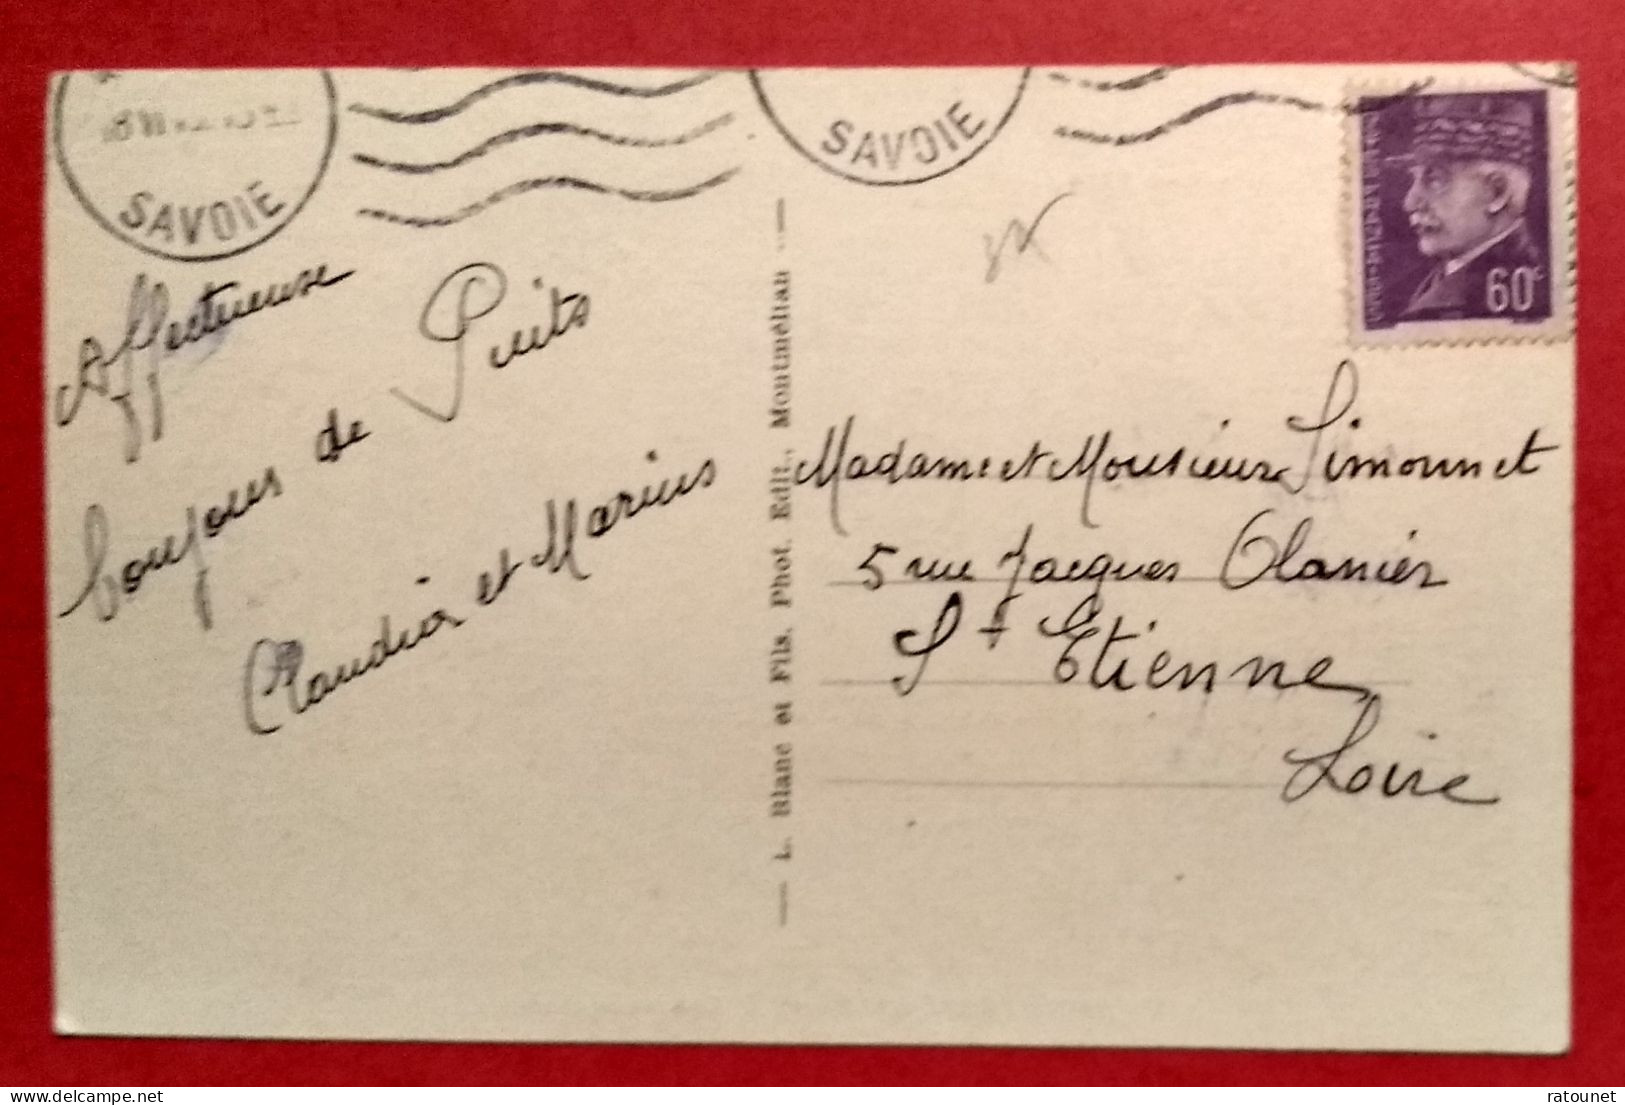 SAVOIE
SAVOIE
60c
Affectueuse
boujous de Puits
Claudia et Marius
L. Blanc et Fils, Phot. Edit., Montmélian
Madame et Monsieur Simonnet
5 rue Jacques
St Etienne
Loire
ratounet